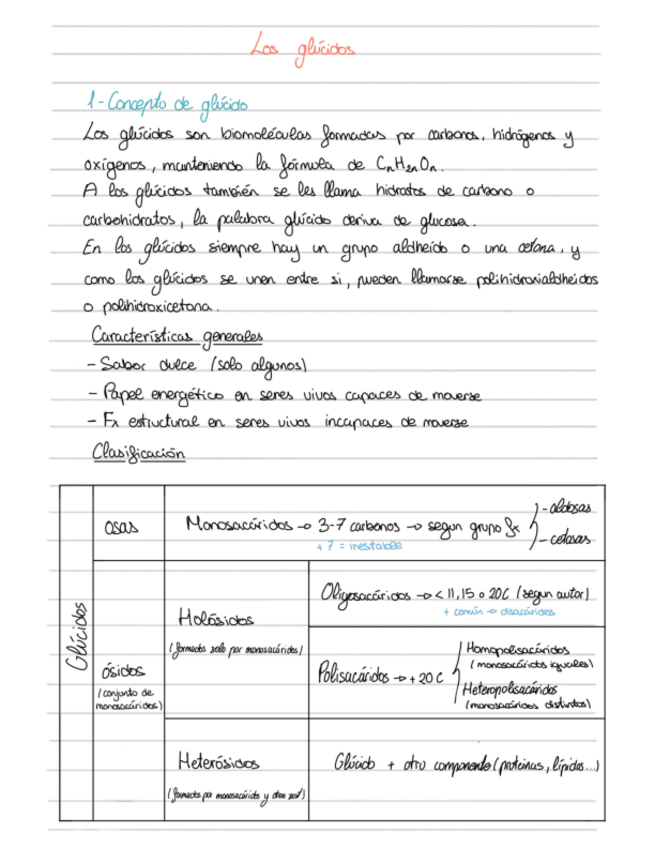 Los glúcidos
1-Concepto de glúcido
Los glúcidos son biomoléculas formadas por carbonos, hidrógenos y
oxígenos, manteniendo la fórmula de CnH2nOn.
A los glúcidos también se les llama hidratos de carbono o
carbohidratos, la palabra glúcido deriva de glucosa.
En los glúcidos siempre hay un grupo aldheído o una cetona, y
como los glúcidos se unen entre si, pueden llamarse polihidroxialdheídos
o polihidroxicetona.
Características generales
- Sabor dulce (solo algunos)
- Papel energético en seres vivos capaces de moverse
- Fx estructural en seres vivos incapaces de moverse
Clasificación
Glúcidos
osas
Monosacáridos → 3-7 carbonos → segun grupo fx
- aldosas
- cetosas
+ 7 = inestable
ósidos
(conjunto de
monosacáridos)
Holósidos
(formados solo por monosacáridos)
Oligosacáridos → < 11, 15 o 20C (segun autor)
+ común → disacáridos
Polisacáridos → + 20 C
Homopolisacáridos
(monosacáridos iguales)
Heteropolisacáridos
(monosacáridos distintos)
Heterósidos
(formados por monosacáridos y otra
Glúcido + otro componente (proteinas, lípidos...)